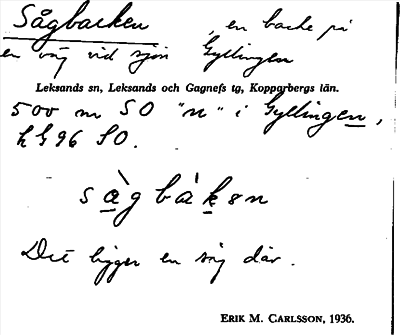 Sågbacken, en backe på
en väg vid sjön Gyllingen
Leksands sn, Leksands och Gagnefs tg, Kopparbergs län.
500 m SO "n" i Gyllingen,
h G 96 SO.
sàgbàkən
Det ligger en såg där.
ERIK M. CARLSSON, 1936.